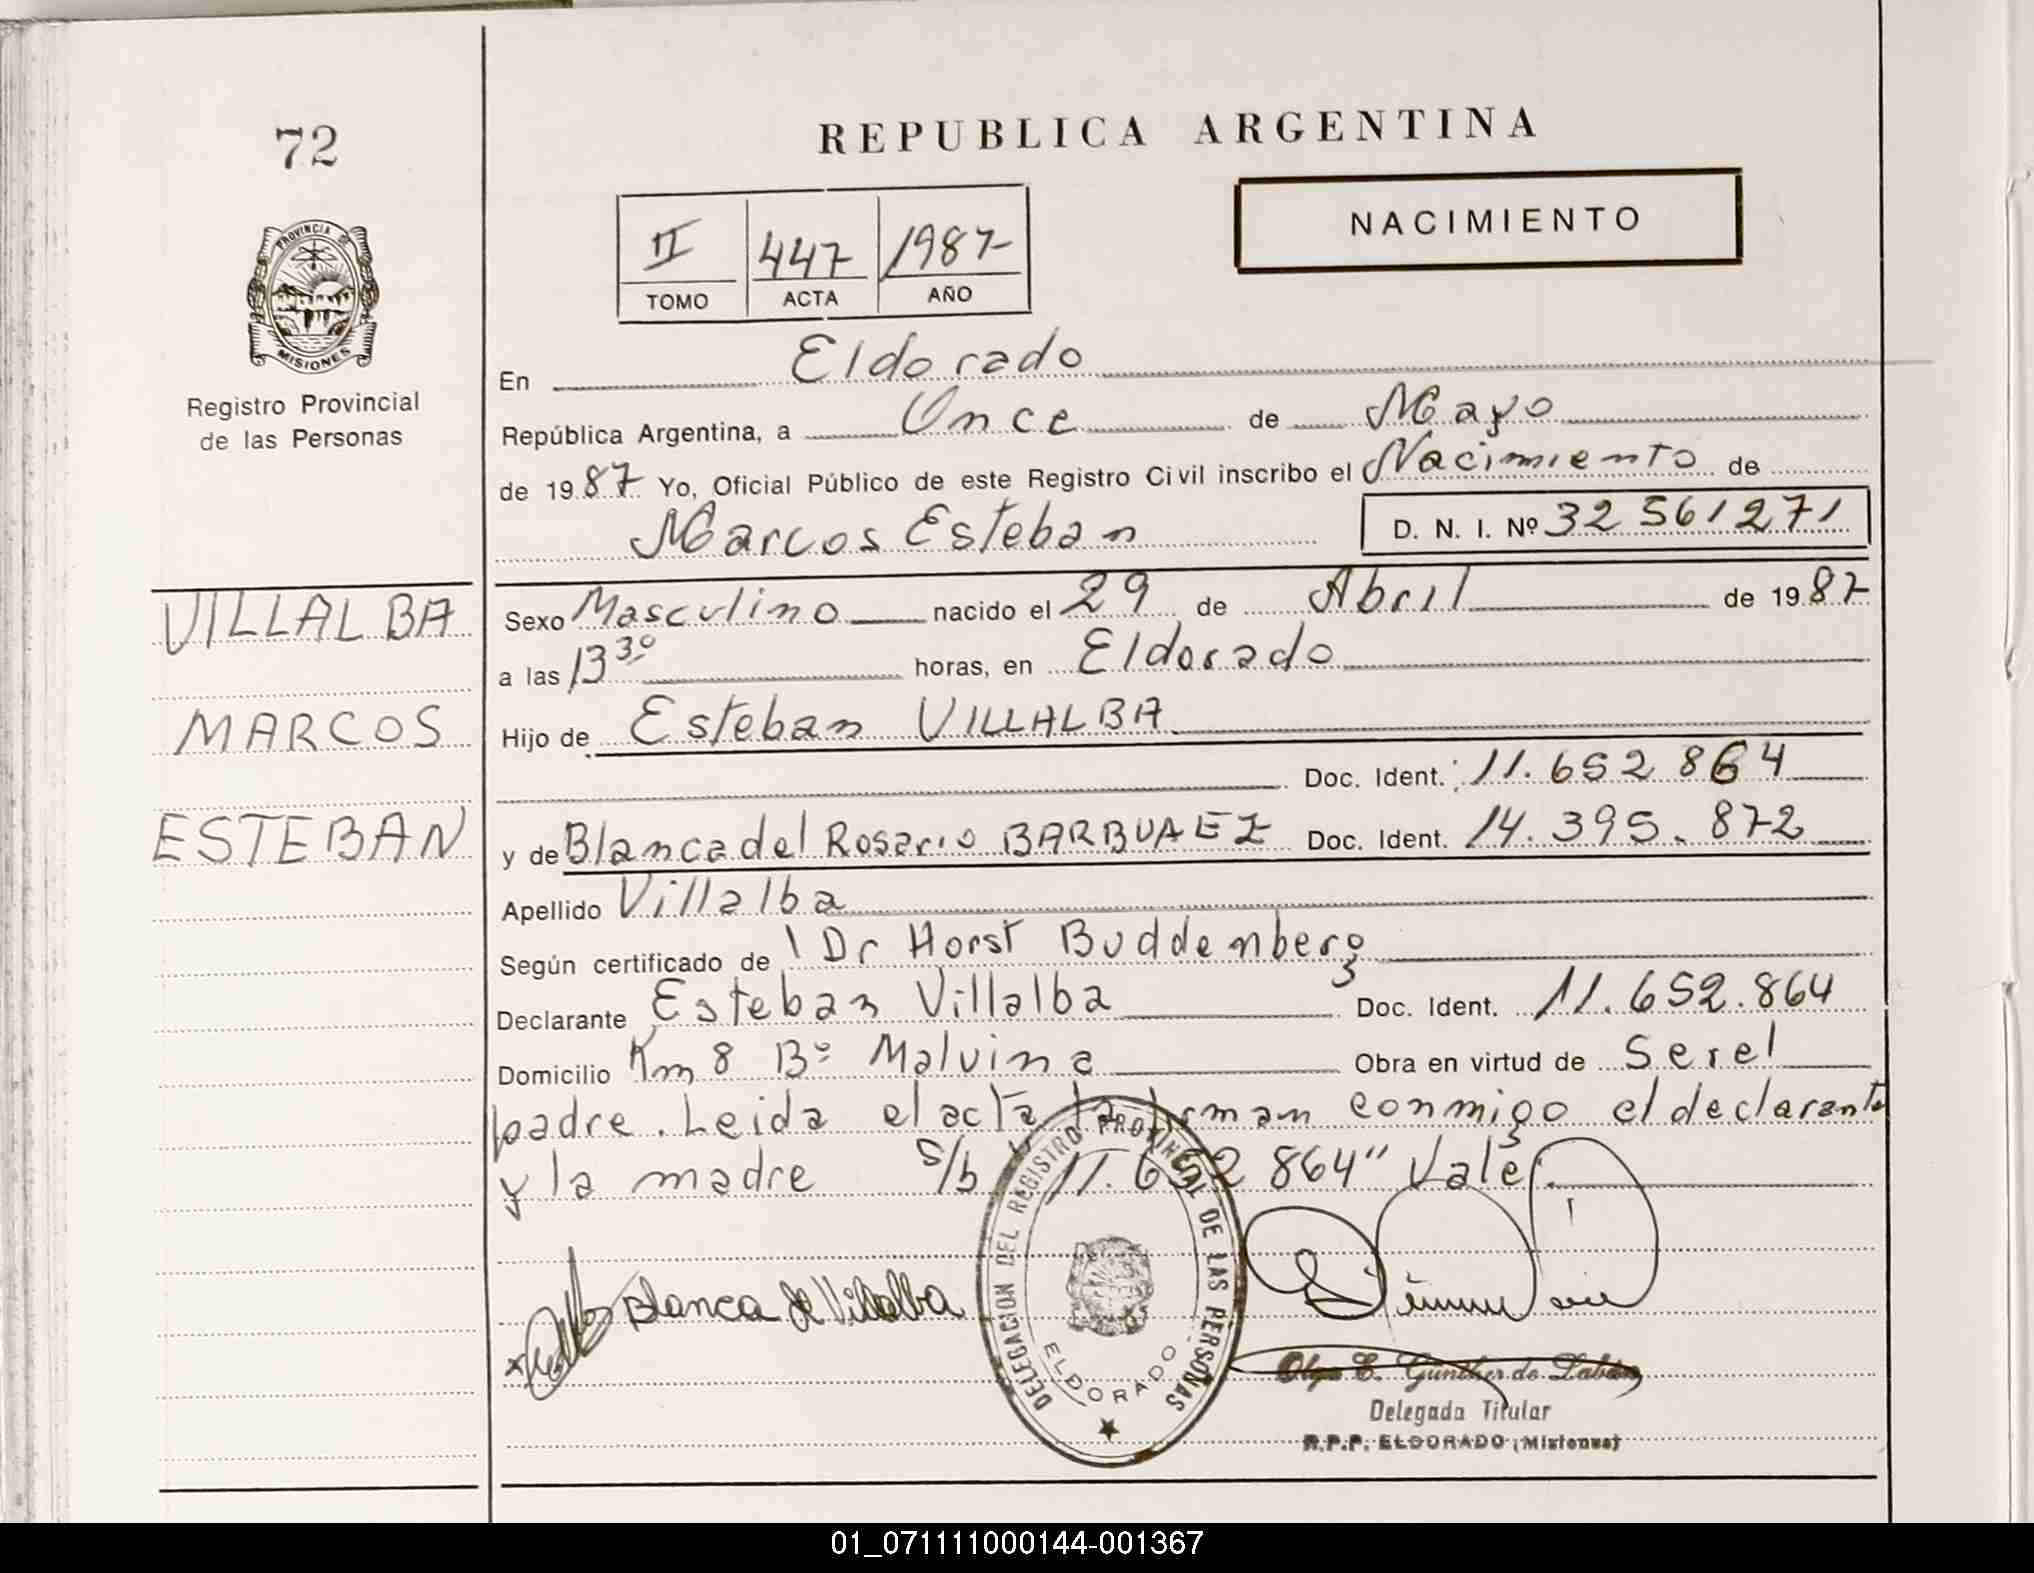 72
REPUBLICA ARGENTINA
NACIMIENTO
II 447 1987
TOMO ACTA AÑO
PROVINCIA DE
MISIONES
Registro Provincial
de las Personas
En Eldorado
República Argentina, a Once de Mayo
de 1987 Yo, Oficial Público de este Registro Civil inscribo el Nacimiento de
Marcos Esteban D. N. I. Nº 32 561271
VILLALBA
MARCOS
ESTEBAN
Sexo Masculino nacido el 29 de Abril de 1987
a las 13 30 horas, en Eldorado
Hijo de Esteban VILLALBA
Doc. Ident. 11.652 864
y de Blanca del Rosario BARBUAEZ Doc. Ident. 14.395.872
Apellido Villalba
Según certificado de Dr Horst Buddenberg
Declarante Esteban Villalba Doc. Ident. 11.652.864
Domicilio Km 8 Bº Malvina Obra en virtud de Ser el
padre. Leida el acta la firman conmigo el declarante
y la madre s/b 11.652 864" Vale.
Blanca de Villalba
DELEGACION DEL REGISTRO PROVINCIAL DE LAS PERSONAS
ELDORADO
Olga E. Gunther de Labán
Delegada Titular
R.P.P. ELDORADO (Misiones)
01_071111000144-001367